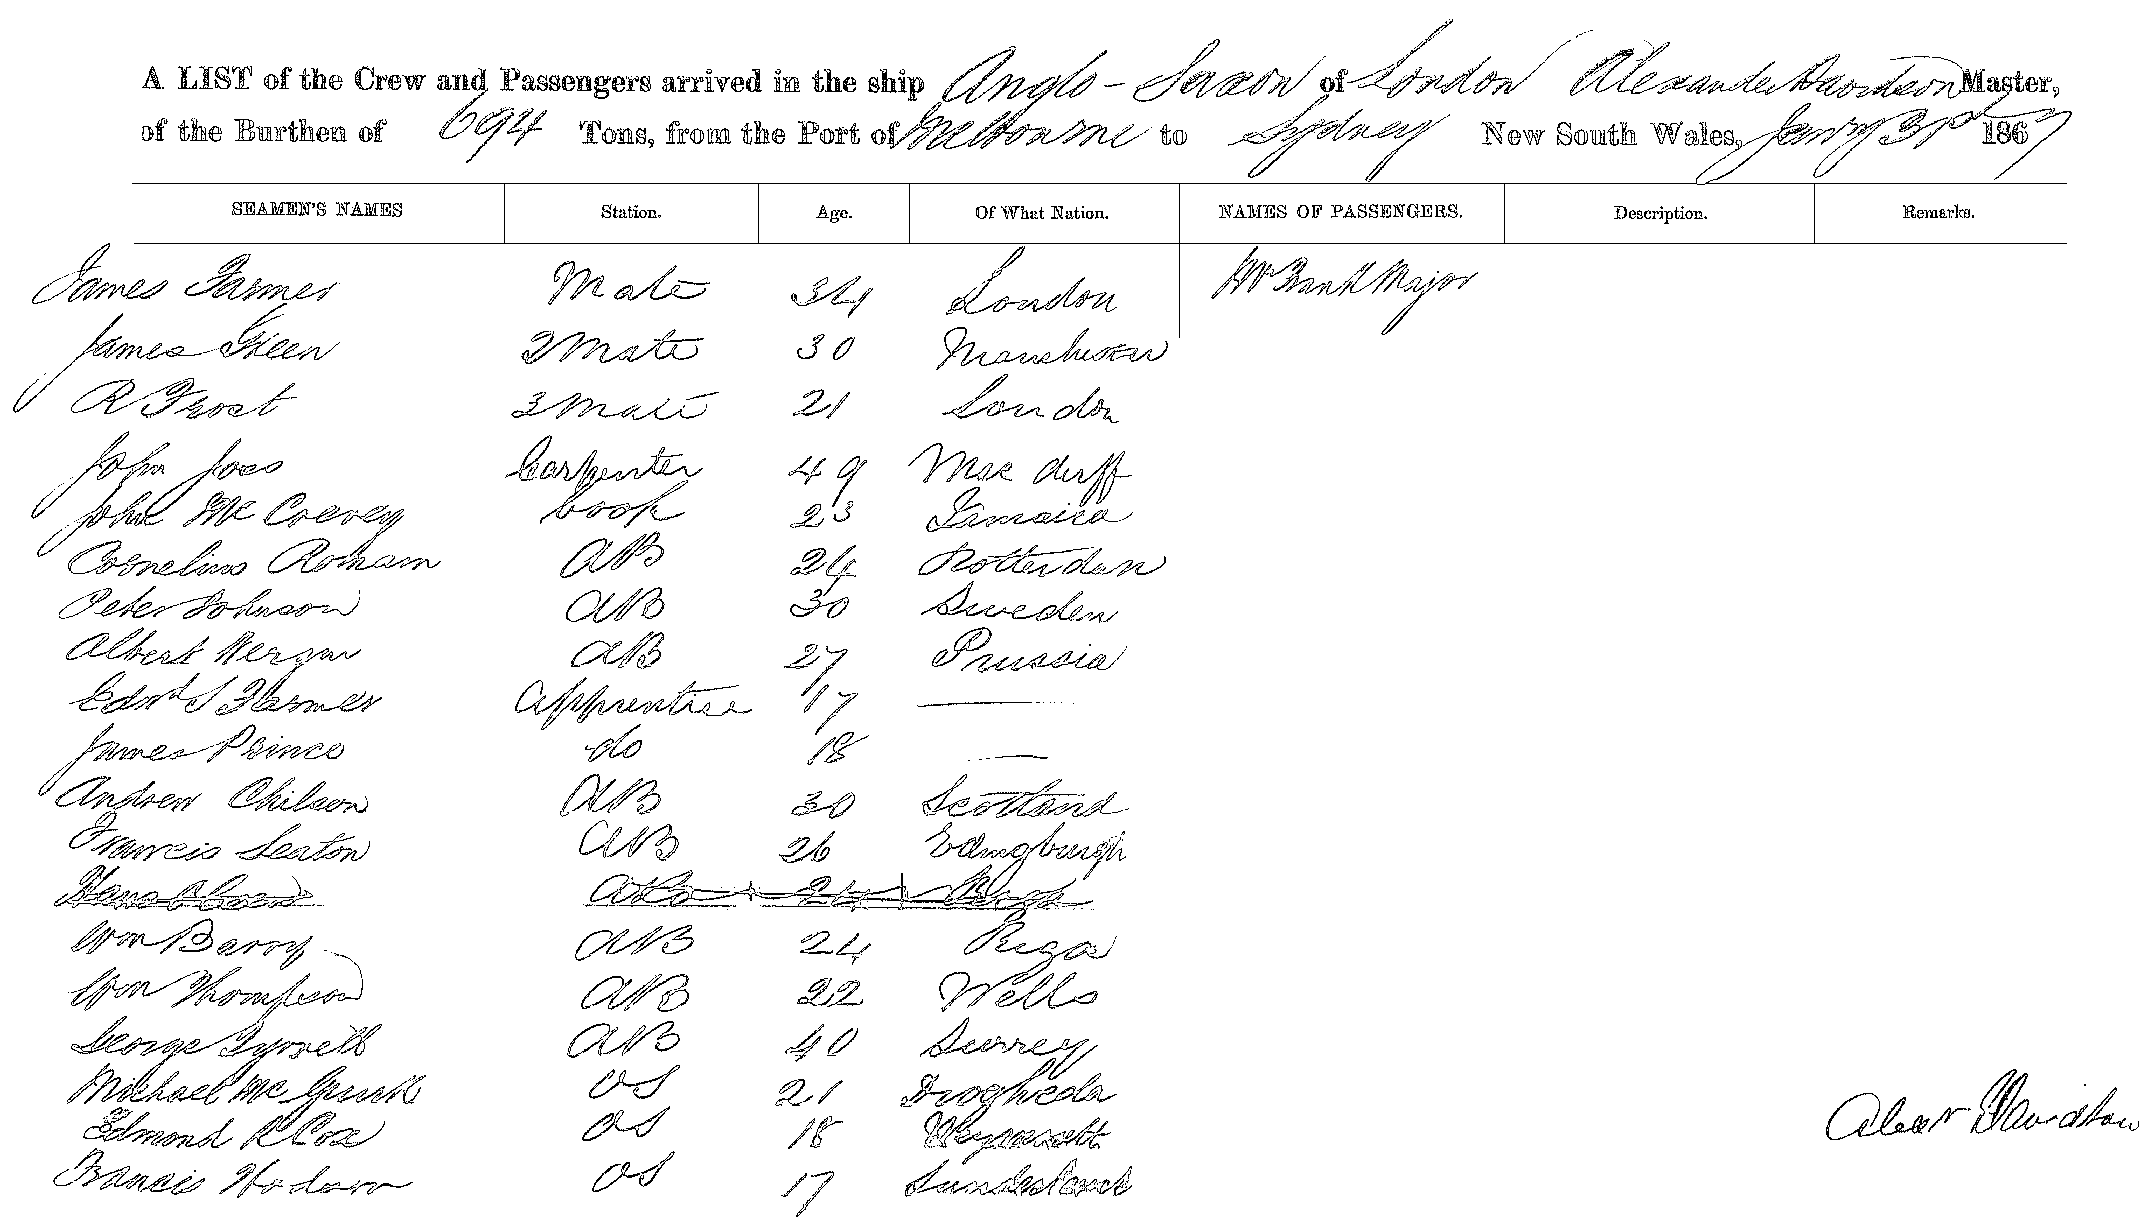 A LIST of the Crew and Passengers arrived in the ship Anglo-Saxon of London Alexander Davidson Master,
of the Burthen of 694 Tons, from the Port of Melbourne to Sydney New South Wales, Jany 31st 1867
SEAMEN'S NAMES Station. Age. Of What Nation. NAMES OF PASSENGERS. Description. Remarks.
James Farmer Mate 34 London Mr Frank Major
James Steen 2 Mate 30 Manchester
R Frost 3 Mate 21 London
John Joes Carpenter 49 Mac duff
John Mc Crevey Cook 23 Jamaica
Cornelius Romam AB 24 Rotterdam
Peter Johnson AB 30 Sweden
Albert AB 27 Prussia
Edwd S Farmer Apprentice 17 —
James Prince do 18 —
Andrew Chilson AB 30 Scotland
Francis Seaton AB 26 Edingburgh
AB 24
Wm Barry AB 24 Riga
Wm Thompson AB 22 Wells
George Tyrrell AB 40 Surrey
Michael Mc Gurk OS 21 Drogheda
Edmond R Cox OS 18
Francis Hodson OS 17 Sunderland
Alexr Davidson